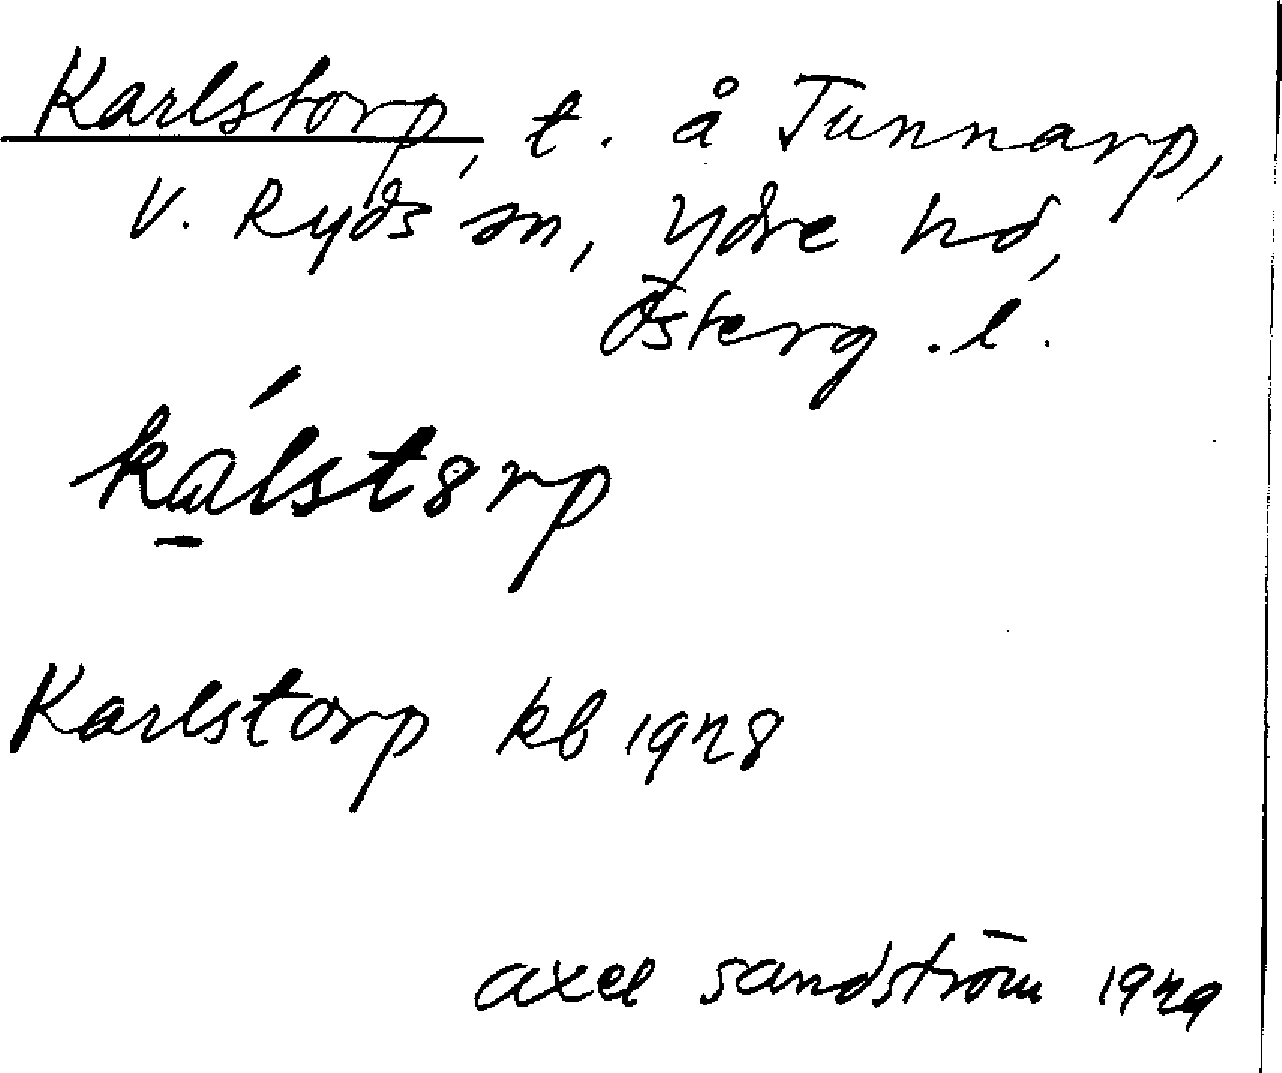 Karlstorp, t. å Tunnarp,
V. Ryds sn, Ydre hd,
Österg. l.
kálstorp
Karlstorp kb 1928
Axel Sandström 1929